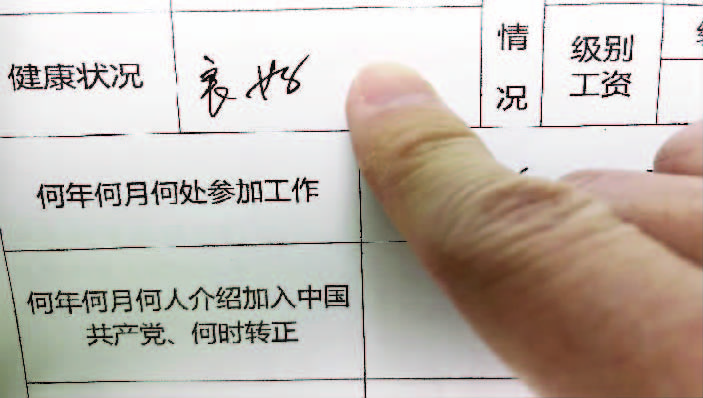 健康状况
良好
情况
级别
工资
何年何月何处参加工作
何年何月何人介绍加入中国
共产党、何时转正